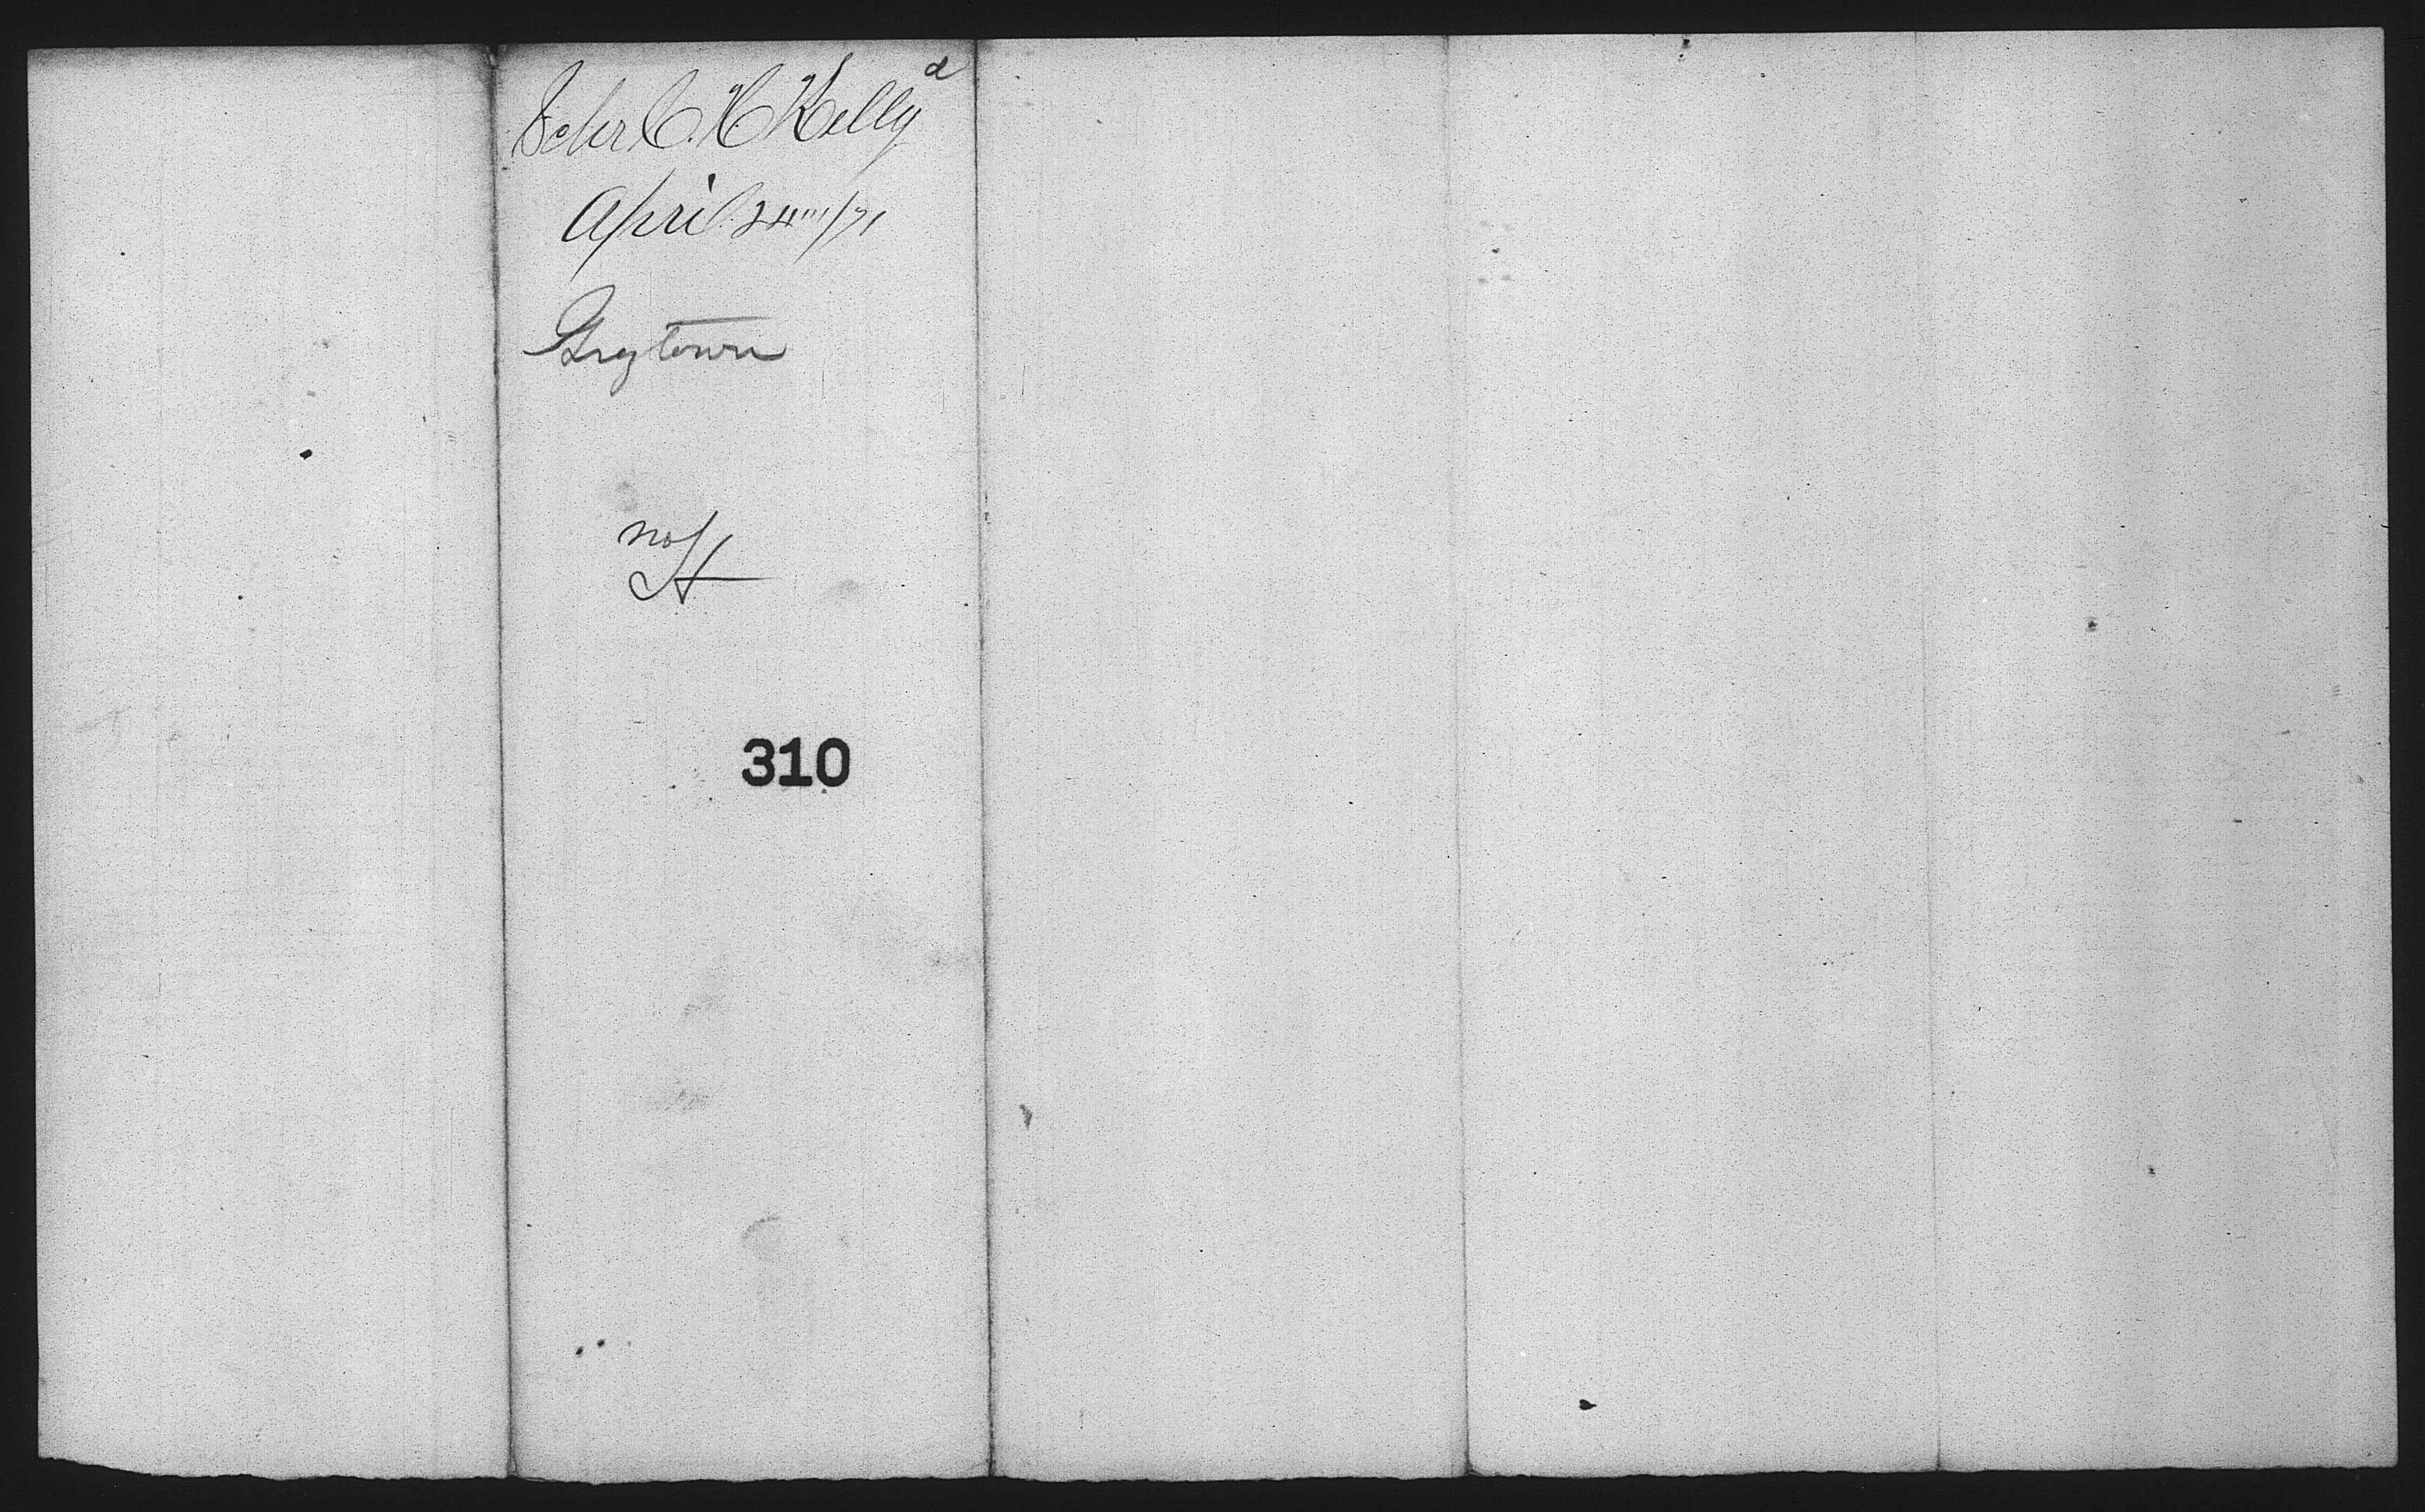 d
Schr C. H. Kelly
April 24"/71
Greytown
no H
310